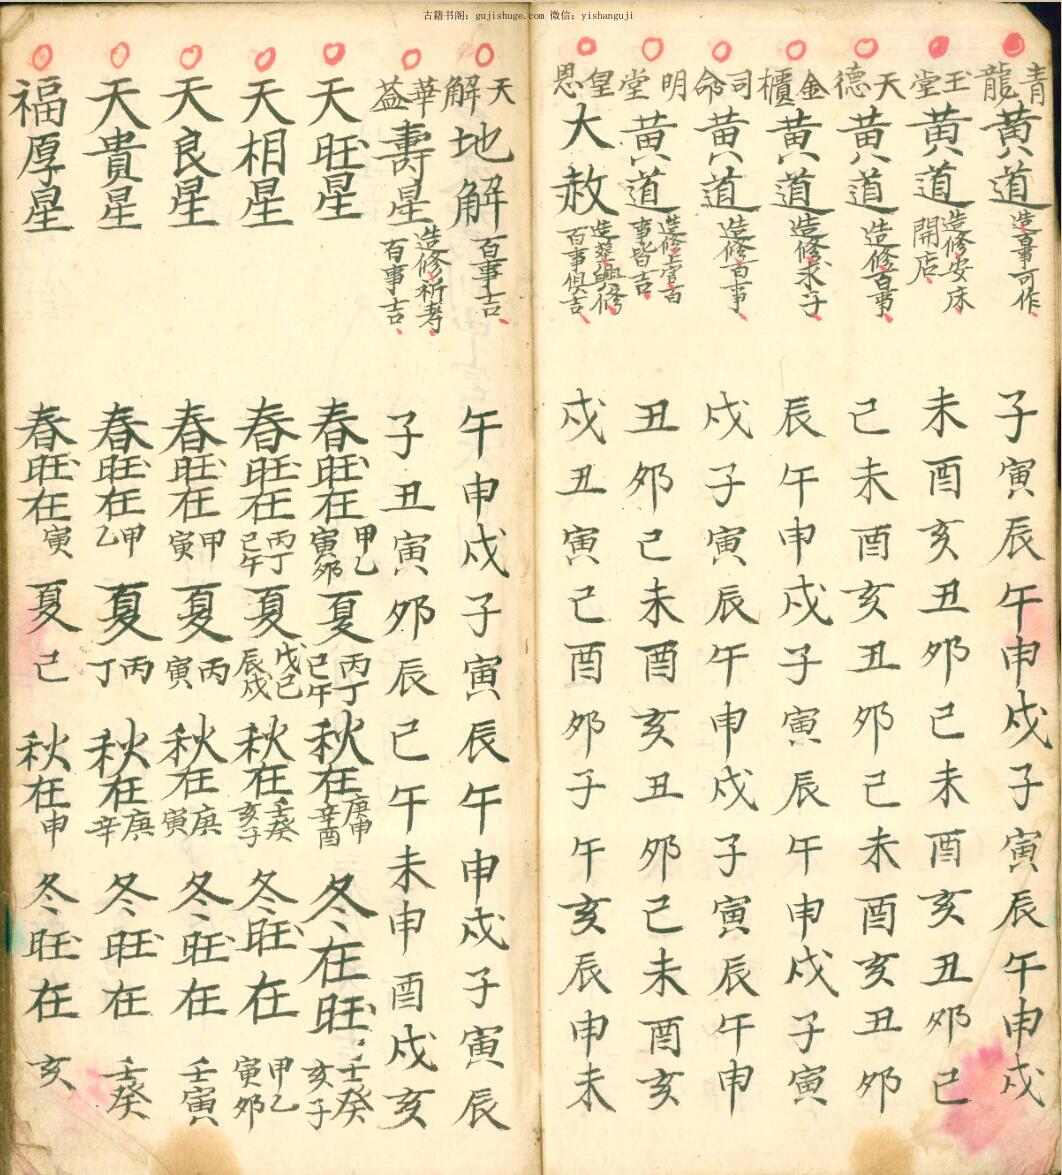 古籍书阁：gujishuge.com 微信：yishanguji
青龍黄道 造百事可作 子寅辰午申戌子寅辰午申戌
玉堂黄道 造修安床開店 未酉亥丑卯己未酉亥丑卯己
天德黄道 造修百事 己未酉亥丑卯己未酉亥丑卯
金櫃黄道 造修求子 辰午申戌子寅辰午申戌子寅
司命黄道 造修百事 戌子寅辰午申戌子寅辰午申
明堂黄道 造修上官百事皆吉 丑卯己未酉亥丑卯己未酉亥
皇恩大赦 造葬興修百事俱吉 戌丑寅己酉卯子午亥辰申未
天解地解 百事吉 午申戌子寅辰午申戌子寅辰
華蓋壽星 造修祈寿百事吉 子丑寅卯辰己午未申酉戌亥
天旺星 春旺在甲乙寅卯 夏丙丁己午 秋在庚申辛酉 冬在旺壬癸亥子
天相星 春旺在丙丁己午 夏戊己辰戌 秋在壬癸亥子 冬旺在甲乙寅卯
天良星 春旺在甲寅 夏丙寅 秋在庚寅 冬旺在壬寅
天貴星 春旺在甲乙 夏丙丁 秋在庚辛 冬旺在壬癸
福厚星 春旺在寅 夏己 秋在申 冬旺在亥